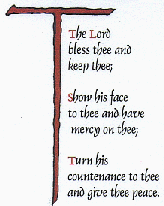 The Lord
bless thee and
keep thee;
Show his face
to thee and have
mercy on thee;
Turn his
countenance to thee
and give thee peace.